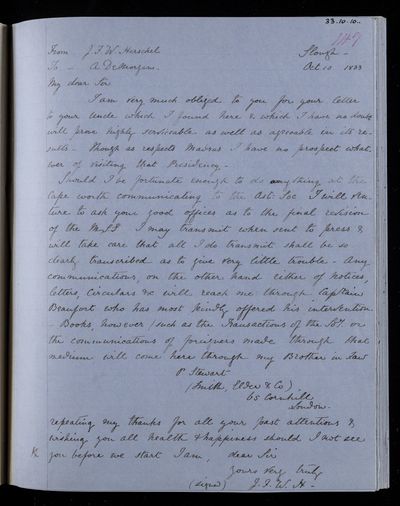 33.10.10.
149
From J.F.W. Herschel Slough -
To - A DeMorgan. Oct. 10 1833
My dear Sir
I am very much obliged to you for your letter
to your uncle which I found here & which I have no doubt
will prove highly serviceable as well as agreeable in its re-
sults - though as respects Madras I have no prospect what-
ever of visiting that Presidency -
Should I be fortunate enough to do anything at the
Cape worth communicating to the Ast. Soc I will ven
ture to ask your good offices as to the final revision
of the M.S.S I may transmit when sent to press &
will take care that all I do transmit shall be so
clearly transcribed as to give very little trouble - Any
communications, on the other hand either of notices,
letters, Circulars &c will reach me through Captain
Beaufort who has most kindly offered his intervention.
- Books, however (such as the Transactions of the Soc or
the communications of foreigners made through that
medium will come here through my Brother in Law
P. Stewart
(Smith, Elder & Co)
65 Cornhill
London -
repeating my thanks for all your past attentions &
wishing you all health & happiness should I not see
you before we start I am, dear Sir
yours very truly
(signed) J.F.W. H -